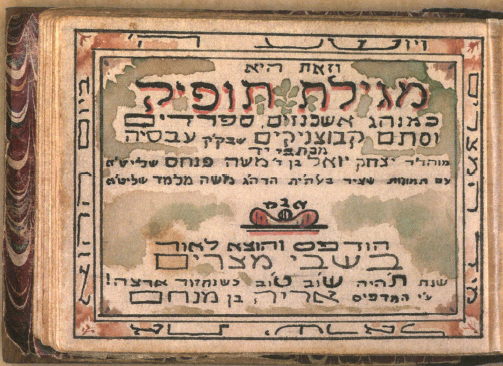 ויושע ה'
ביום ההוא
את ישראל
מיד
וזאת היא
מגילת תופיק
כמנהג אשכנזים ספרדים
וסתם קבוצניקים שבק"ק עבסיה
מכתבי יד
מוהר"ר יצחק יואל בן ר' משה פנחס שליט"א
עם תמונות שצייר הרה"ג משה מלמד שליט"א
הודפס והוצא לאור
בשבי מצרים
שנת תהיה שוב טוב כשנחזור ארצה!
ע"י המדפיס אריה בן מנחם